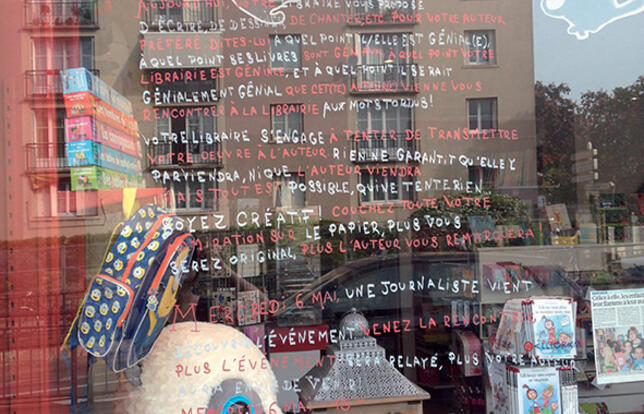 AUJOURD'HUI, VOTRE LIBRAIRE VOUS PROPOSE
D'ÉCRIRE, DE DESSINER, DE CHANTER, ETC. POUR VOTRE AUTEUR
PRÉFÉRÉ. DITES-LUI À QUEL POINT IL/ELLE EST GÉNIAL(E),
À QUEL POINT SES LIVRES SONT GÉNIAUX, À QUEL POINT VOTRE
LIBRAIRIE EST GÉNIALE, ET À QUEL POINT IL SERAIT
GÉNIALEMENT GÉNIAL QUE CET(TE) AUTEUR(E) VIENNE VOUS
RENCONTRER À LA LIBRAIRIE AUX MOTS TORDUS!
VOTRE LIBRAIRE S'ENGAGE À TENTER DE TRANSMETTRE
VOTRE ŒUVRE À L'AUTEUR. RIEN NE GARANTIT QU'ELLE Y
PARVIENDRA, NI QUE L'AUTEUR VIENDRA
MAIS TOUT EST POSSIBLE, QUI VE TENTE RIEN...
SOYEZ CRÉATIF! COUCHEZ TOUTE VOTRE
ADMIRATION SUR LE PAPIER, PLUS VOUS
SEREZ ORIGINAL, PLUS L'AUTEUR VOUS REMARQUERA
MERCREDI 6 MAI, UNE JOURNALISTE VIENT
DÉCOUVRIR L'ÉVÉNEMENT VENEZ LA RENCONTRER
PLUS L'ÉVÉNEMENT SERA RELAYÉ, PLUS VOTRE AUTEUR
AURA ENVIE DE VENIR!
MERCREDI 6 MAI